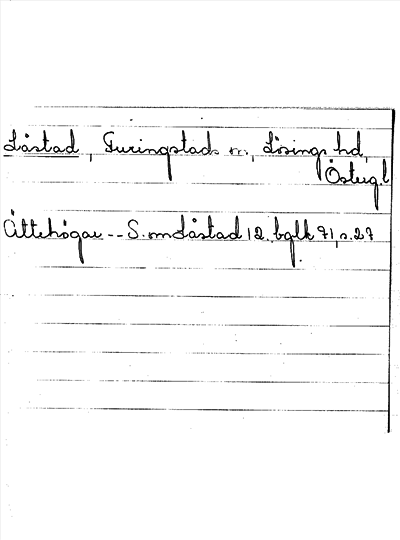 Låstad, Furingstads sn., Lösings hd,
Östergl
Ättehögar -- S. om Låstad 12. bglk 71, s. 27